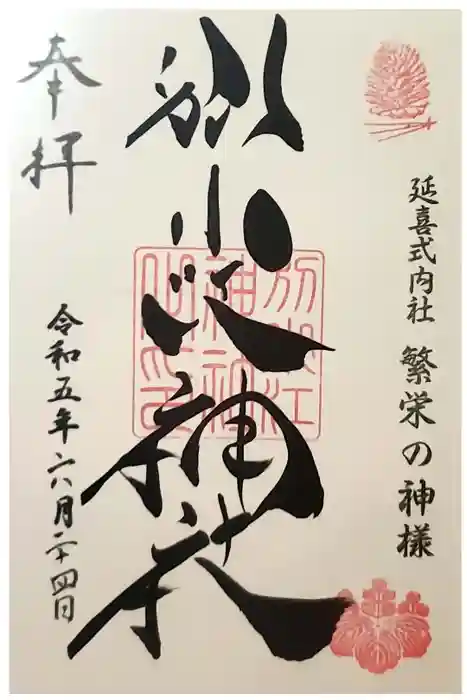 延喜式内社 繁栄の神様
別小江神社
別小江
神社
之印
奉拝
令和五年六月二十四日